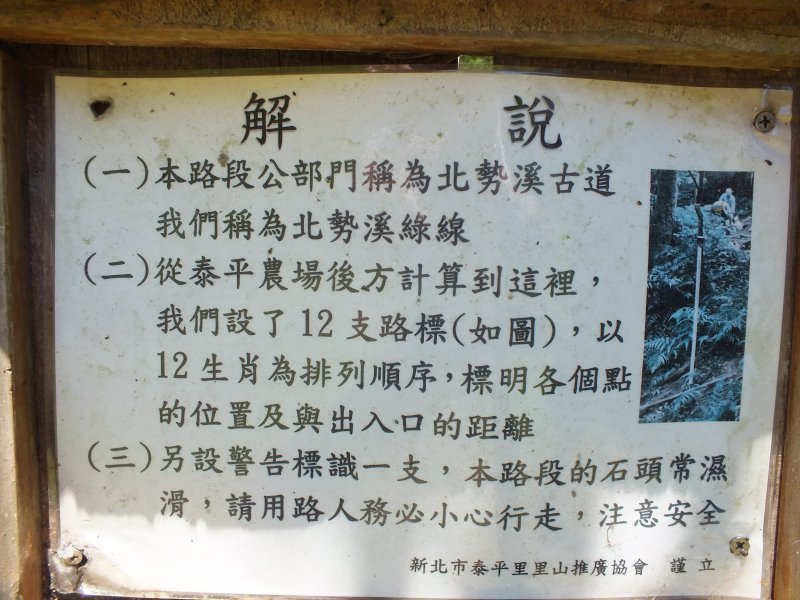 解 說
(一)本路段公部門稱為北勢溪古道
我們稱為北勢溪綠線
(二)從泰平農場後方計算到這裡，
我們設了12支路標(如圖)，以
12生肖為排列順序，標明各個點
的位置及與出入口的距離
(三)另設警告標識一支，本路段的石頭常濕
滑，請用路人務必小心行走，注意安全
新北市泰平里里山推廣協會 謹立